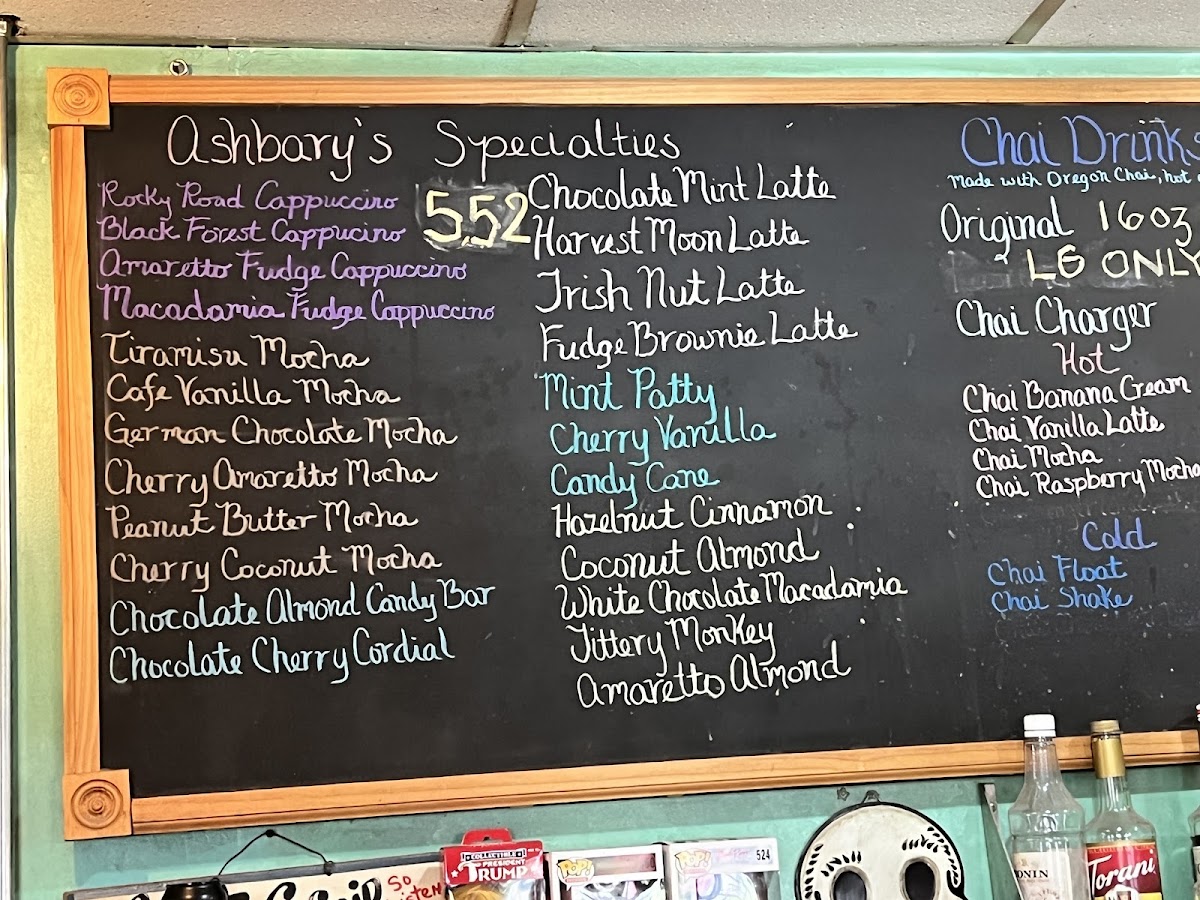 Ashbary's Specialties
Rocky Road Cappuccino
Black Forest Cappucino
Amaretto Fudge Cappuccino
Macadamia Fudge Cappuccino
5.52
Tiramisu Mocha
Cafe Vanilla Mocha
German Chocolate Mocha
Cherry Amaretto Mocha
Peanut Butter Mocha
Cherry Coconut Mocha
Chocolate Almond Candy Bar
Chocolate Cherry Cordial
Chocolate Mint Latte
Harvest Moon Latte
Irish Nut Latte
Fudge Brownie Latte
Mint Patty
Cherry Vanilla
Candy Cane
Hazelnut Cinnamon
Coconut Almond
White Chocolate Macadamia
Jittery Monkey
Amaretto Almond
Chai Drinks
Made with Oregon Chai, hot
Original 16oz
LG ONLY
Chai Charger
Hot
Chai Banana Cream
Chai Vanilla Latte
Chai Mocha
Chai Raspberry Mocha
Cold
Chai Float
Chai Shake
So
COLLECTIBLE
PRESIDENT
TRUMP
POP!
POP!
524
ONIN
Torani